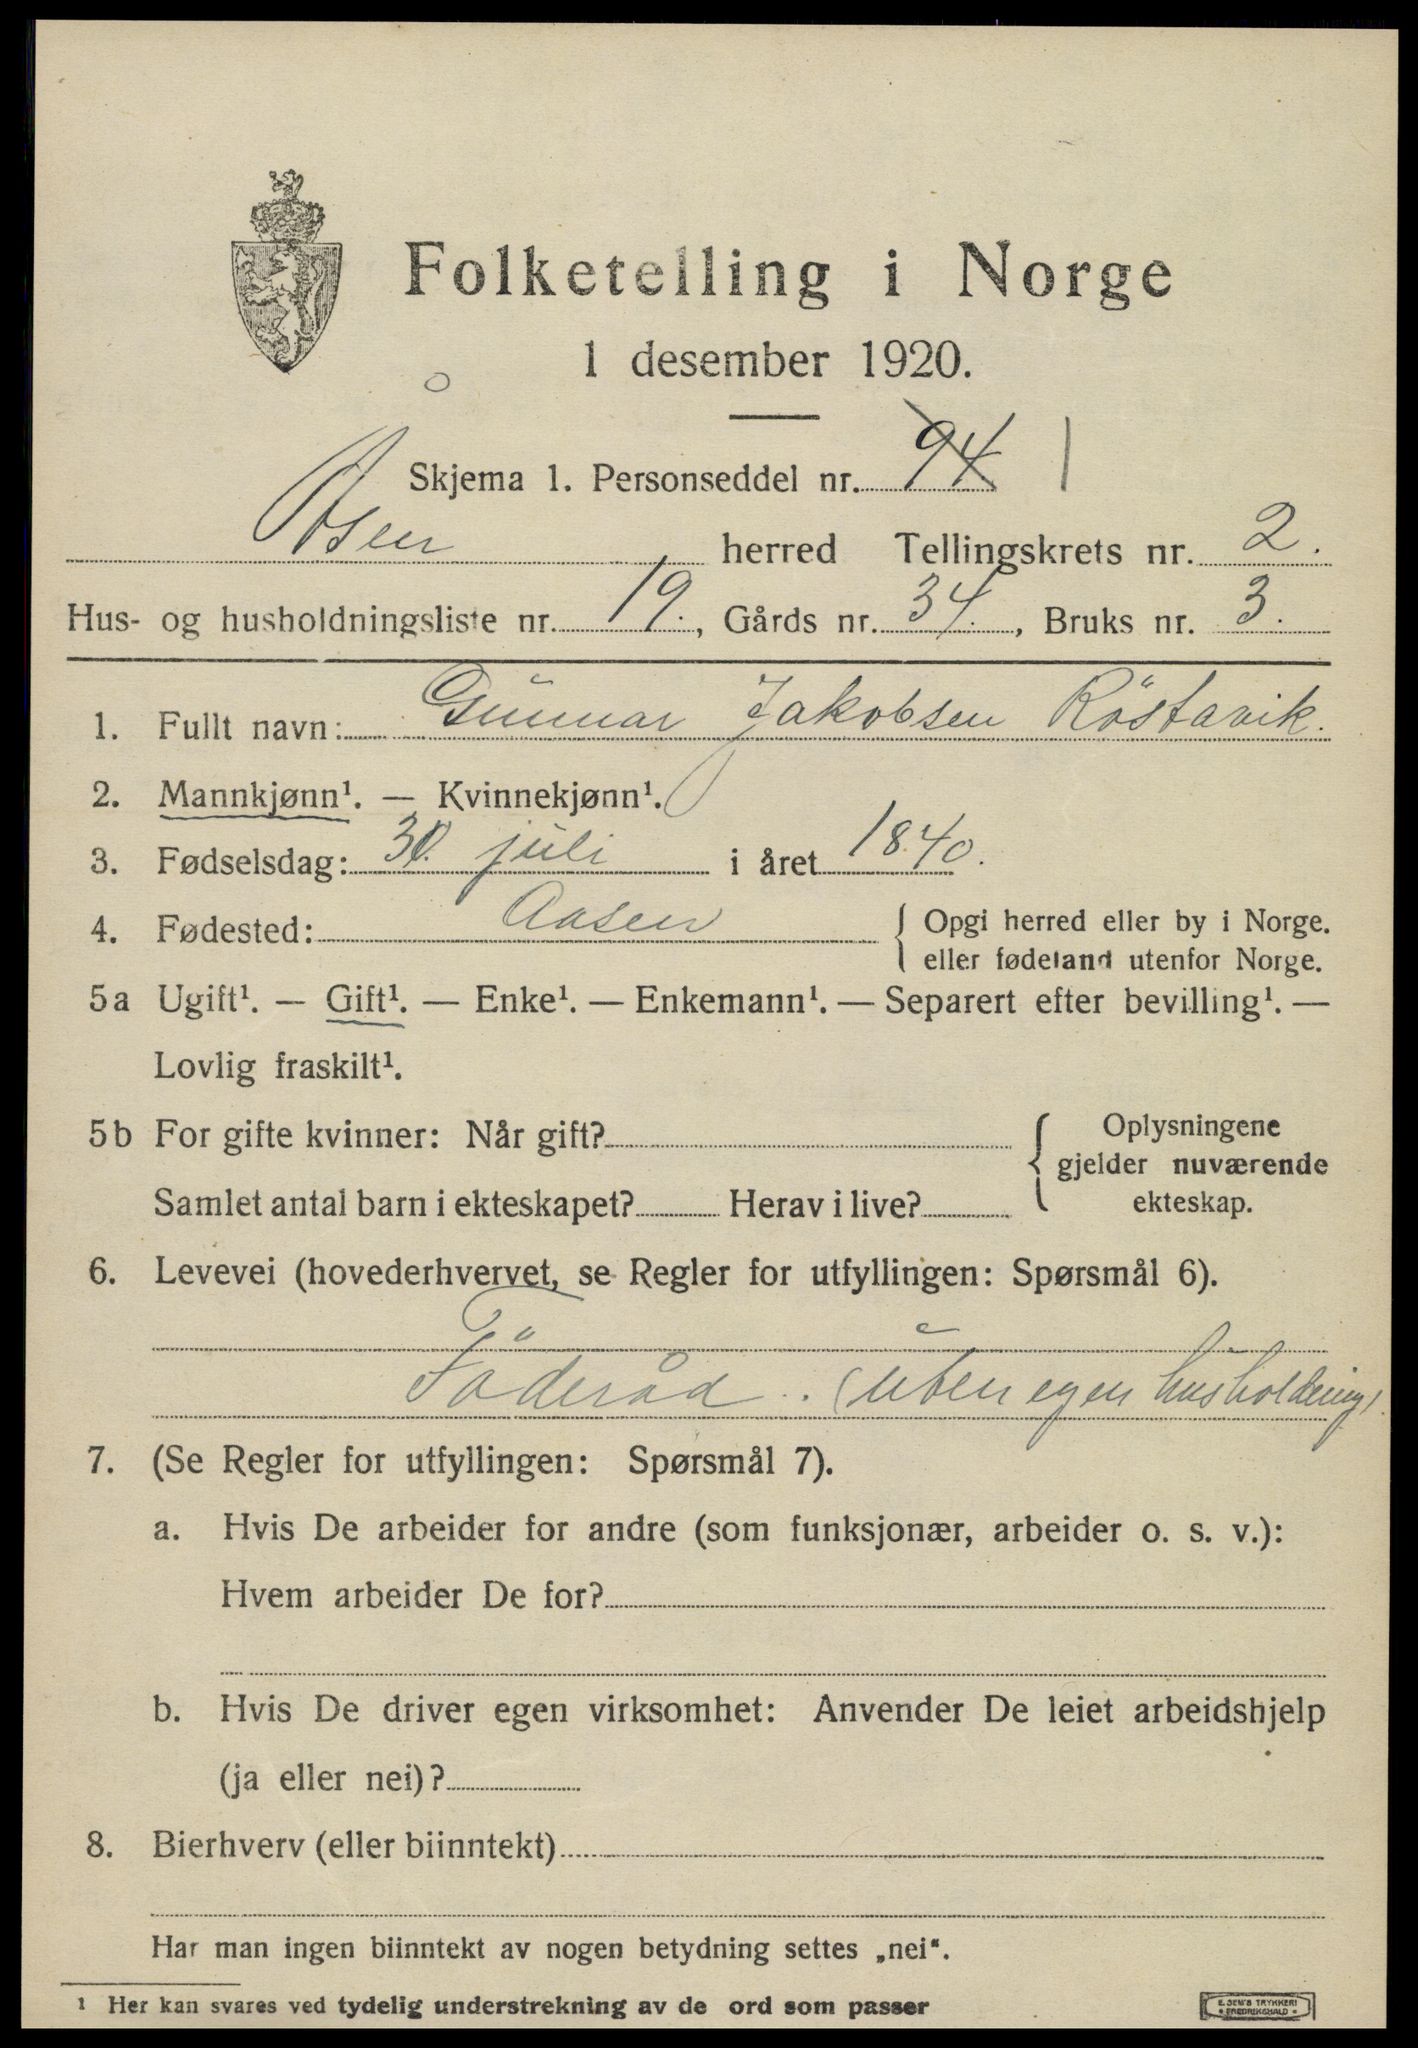 Folketelling i Norge
1 desember 1920.
Skjema 1. Personseddel nr. 94 1
Åsen herred Tellingskrets nr. 2.
Hus- og husholdningsliste nr. 19., Gårds nr. 34., Bruks nr. 3.
1. Fullt navn: Gunnar Jakobsen Röstavik.
2. Mannkjønn¹. — Kvinnekjønn¹.
3. Fødselsdag: juli i året 1840.
4. Fødested: Aasen { Opgi herred eller by i Norge.
eller fødeland utenfor Norge.
5a Ugift¹. — Gift¹. — Enke¹. — Enkemann¹. — Separert efter bevilling¹. —
Lovlig fraskilt¹.
5b For gifte kvinner: Når gift? { Oplysningene
gjelder nuværende
Samlet antal barn i ekteskapet? Herav i live? ekteskap.
6. Levevei (hovederhvervet, se Regler for utfyllingen: Spørsmål 6).
Föderåd. (uten egen husholdning)
7. (Se Regler for utfyllingen: Spørsmål 7).
a. Hvis De arbeider for andre (som funksjonær, arbeider o. s. v.):
Hvem arbeider De for?
b. Hvis De driver egen virksomhet: Anvender De leiet arbeidshjelp
(ja eller nei)?
8. Bierhverv (eller biinntekt)
Har man ingen biinntekt av nogen betydning settes „nei“.
¹ Her kan svares ved tydelig understrekning av de ord som passer
E. SEM'S TRYKKERI
FREDRIKSHALD